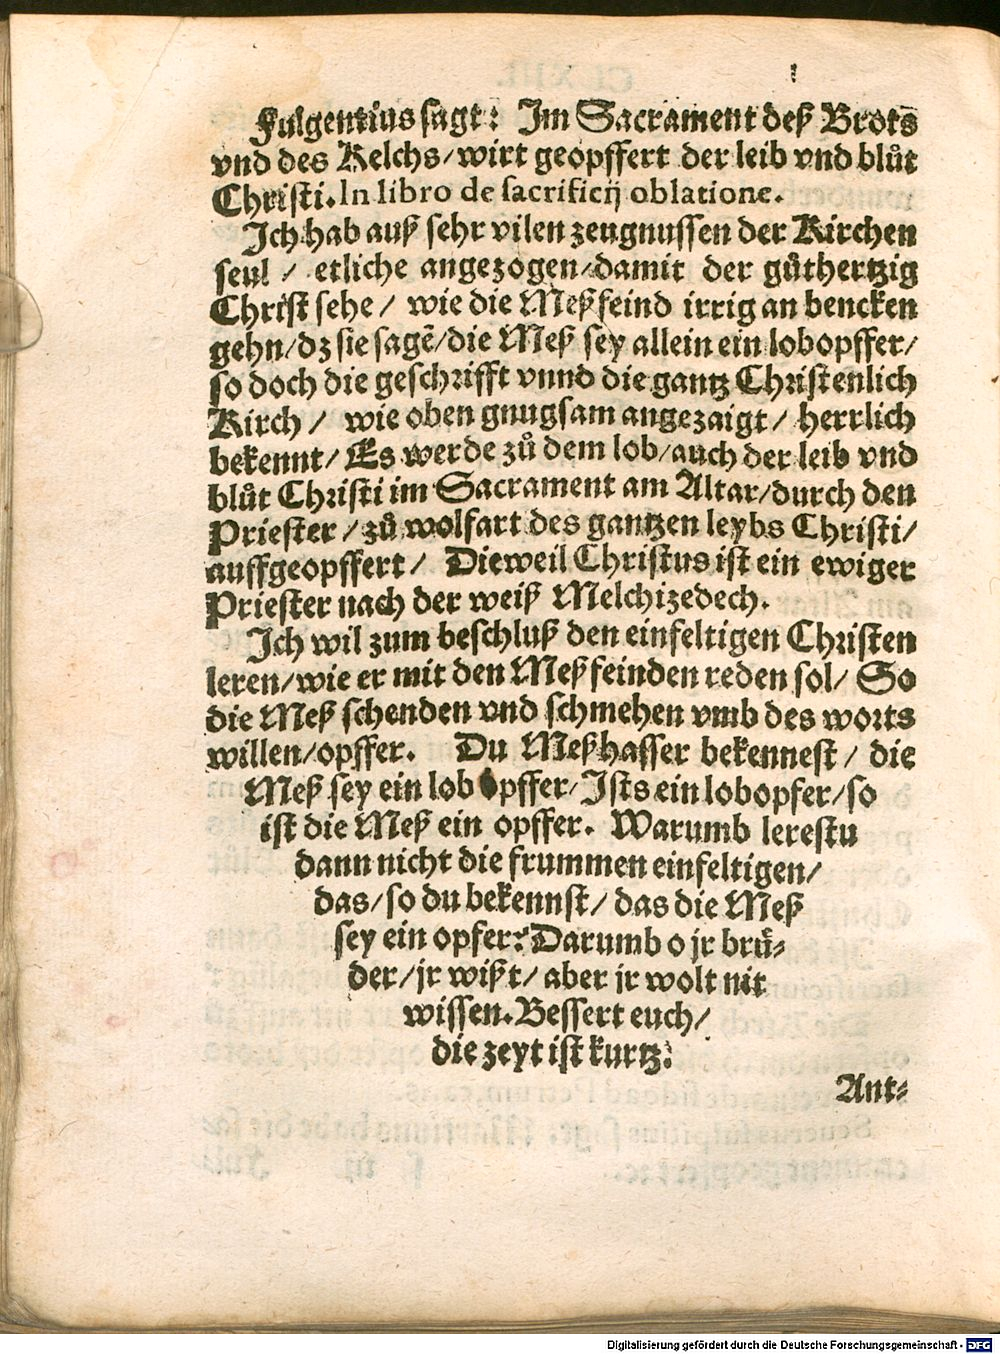 Fulgentius sagt: Im Sacrament deß Brots
vnd des Kelchs/ wirt geopffert der leib vnd blůt
Christi. In libro de sacrificij oblatione.
Ich hab auß sehr vilen zeugnussen der Kirchen
seul / etliche angezogen/ damit der gůthertzig
Christ sehe/ wie die Meßfeind irrig an bencken
gehn/ dz sie sagẽ/ die Meß sey allein ein lobopffer/
so doch die geschrifft vnnd die gantz Christenlich
Kirch / wie oben gnugsam angezaigt / herrlich
bekennt/ Es werde zů dem lob/ auch der leib vnd
blůt Christi im Sacrament am Altar/ durch den
Priester / zů wolfart des gantzen leybs Christi/
auffgeopffert / Dieweil Christus ist ein ewiger
Priester nach der weiß Melchizedech.
Ich wil zum beschluß den einfeltigen Christen
leren/ wie er mit den Meßfeinden reden sol/ So
die Meß schenden vnd schmehen vmb des worts
willen/ opffer. Du Meßhasser bekennest / die
Meß sey ein lob opffer/ Ists ein lobopfer/ so
ist die Meß ein opffer. Warumb lerestu
dann nicht die frummen einfeltigen/
das/ so du bekennst/ das die Meß
sey ein opfer? Darumb o jr brů-
der/ jr wißt/ aber jr wolt nit
wissen. Bessert euch/
die zeyt ist kurtz.
Ant-
Digitalisierung gefördert durch die Deutsche Forschungsgemeinschaft - DFG